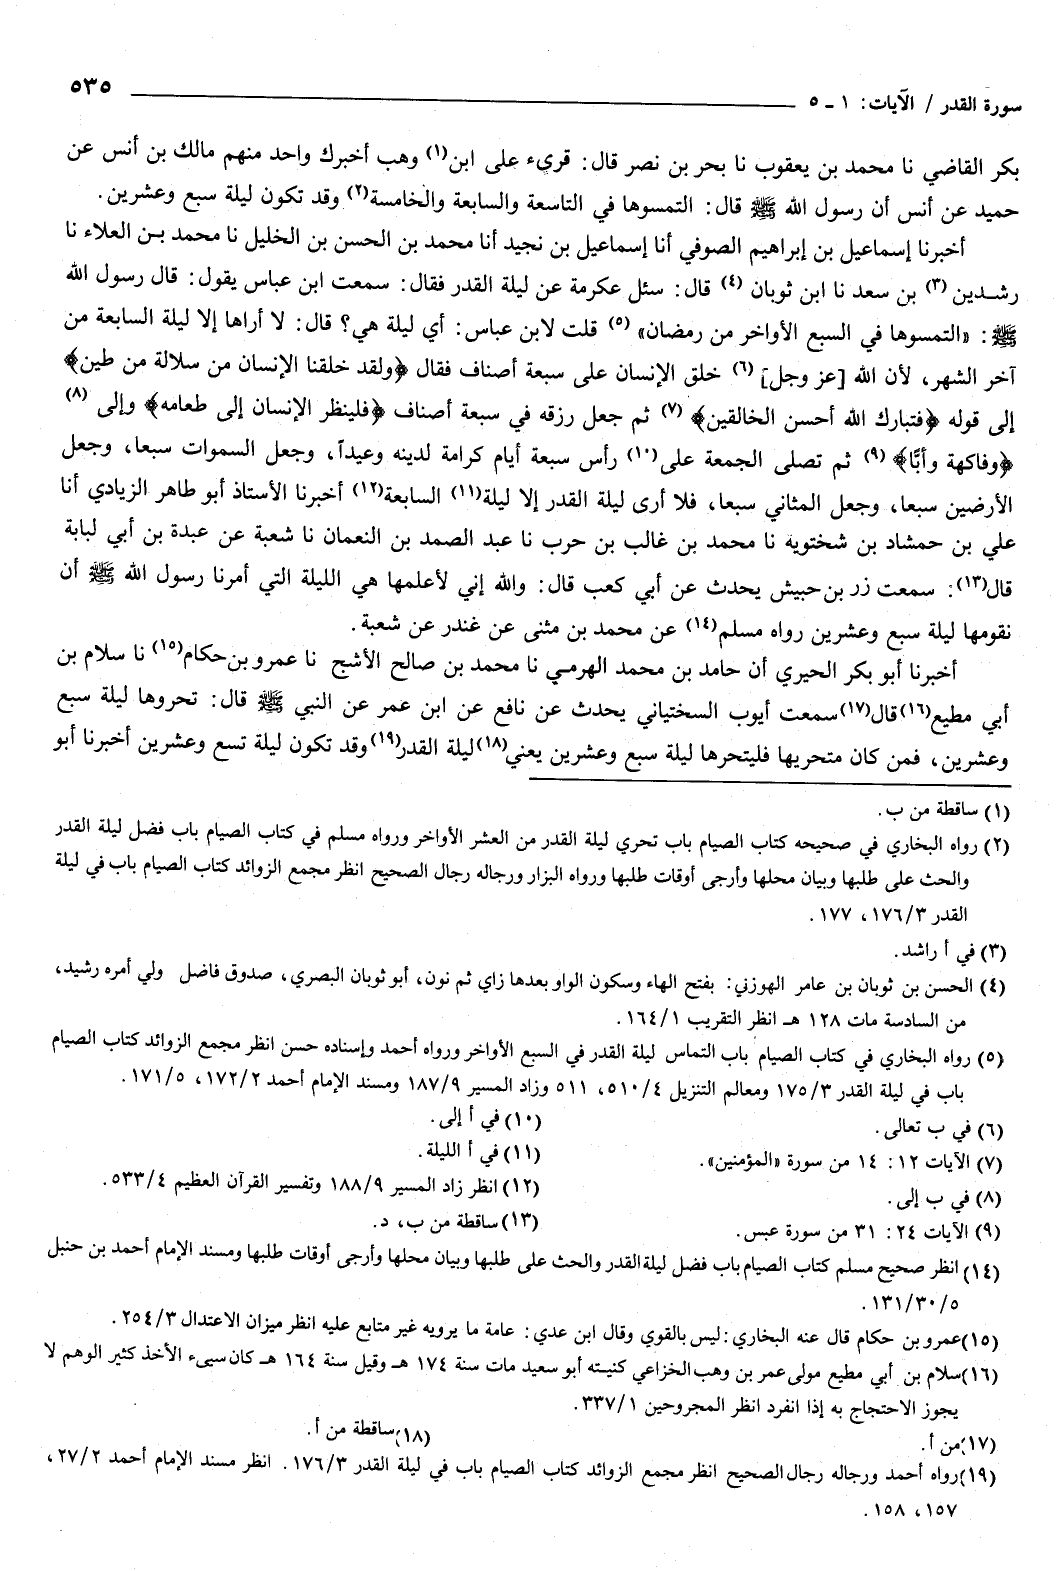 سورة القدر / الآيات: ١ ـ ٥ ٥٣٥
بكر القاضي نا محمد بن يعقوب نا بحر بن نصر قال: قرىء على ابن(١) وهب أخبرك واحد منهم مالك بن أنس عن
حميد عن أنس أن رسول الله ﷺ قال: التمسوها في التاسعة والسابعة والخامسة(٢) وقد تكون ليلة سبع وعشرين.
أخبرنا إسماعيل بن إبراهيم الصوفي أنا إسماعيل بن نجيد أنا محمد بن الحسن بن الخليل نا محمد بن العلاء نا
رشدين (٣) بن سعد نا ابن ثوبان (٤) قال: سئل عكرمة عن ليلة القدر فقال: سمعت ابن عباس يقول: قال رسول الله
ﷺ: «التمسوها في السبع الأواخر من رمضان» (٥) قلت لابن عباس: أي ليلة هي؟ قال: لا أراها إلا ليلة السابعة من
آخر الشهر، لأن الله [عز وجل] (٦) خلق الإنسان على سبعة أصناف فقال ﴿ولقد خلقنا الإنسان من سلالة من طين﴾
إلى قوله ﴿فتبارك الله أحسن الخالقين﴾ (٧) ثم جعل رزقه في سبعة أصناف ﴿فلينظر الإنسان إلى طعامه﴾ وإلى (٨)
﴿وفاكهة وأبًّا﴾ (٩) ثم تصلى الجمعة على(١٠) رأس سبعة أيام كرامة لدينه وعيداً، وجعل السموات سبعا، وجعل
الأرضين سبعا، وجعل المثاني سبعا، فلا أرى ليلة القدر إلا ليلة(١١) السابعة(١٢) أخبرنا الأستاذ أبو طاهر الزيادي أنا
علي بن حمشاد بن شختويه نا محمد بن غالب بن حرب نا عبد الصمد بن النعمان نا شعبة عن عبدة بن أبي لبابة
قال(١٣): سمعت زر بن حبيش يحدث عن أبي كعب قال: والله إني لأعلمها هي الليلة التي أمرنا رسول الله ﷺ أن
نقومها ليلة سبع وعشرين رواه مسلم(١٤) عن محمد بن مثنى عن غندر عن شعبة.
أخبرنا أبو بكر الحيري أن حامد بن محمد الهرمي نا محمد بن صالح الأشج نا عمرو بن حكام(١٥) نا سلام بن
أبي مطيع(١٦) قال(١٧) سمعت أيوب السختياني يحدث عن نافع عن ابن عمر عن النبي ﷺ قال: تحروها ليلة سبع
وعشرين، فمن كان متحريها فليتحرها ليلة سبع وعشرين يعني(١٨) ليلة القدر(١٩) وقد تكون ليلة تسع وعشرين أخبرنا أبو
(١) ساقطة من ب.
(٢) رواه البخاري في صحيحه كتاب الصيام باب تحري ليلة القدر من العشر الأواخر ورواه مسلم في كتاب الصيام باب فضل ليلة القدر
والحث على طلبها وبيان محلها وأرجى أوقات طلبها ورواه البزار ورجاله رجال الصحيح انظر مجمع الزوائد كتاب الصيام باب في ليلة
القدر ١٧٦/٣، ١٧٧.
(٣) في أ راشد.
(٤) الحسن بن ثوبان بن عامر الهوزني: بفتح الهاء وسكون الواو بعدها زاي ثم نون، أبو ثوبان البصري، صدوق فاضل ولي أمره رشيد،
من السادسة مات ١٢٨ هـ انظر التقريب ١٦٤/١.
(٥) رواه البخاري في كتاب الصيام باب التماس ليلة القدر في السبع الأواخر ورواه أحمد وإسناده حسن انظر مجمع الزوائد كتاب الصيام
باب في ليلة القدر ١٧٥/٣ ومعالم التنزيل ٥١٠/٤، ٥١١ وزاد المسير ١٨٧/٩ ومسند الإمام أحمد ١٧٢/٢، ١٧١/٥.
(٦) في ب تعالى. (١٠) في أ إلى.
(٧) الآيات ١٢: ١٤ من سورة «المؤمنين». (١١) في أ الليلة.
(٨) في ب إلى. (١٢) انظر زاد المسير ١٨٨/٩ وتفسير القرآن العظيم ٥٣٣/٤.
(٩) الآيات ٢٤: ٣١ من سورة عبس. (١٣) ساقطة من ب، د.
(١٤) انظر صحيح مسلم كتاب الصيام باب فضل ليلة القدر والحث على طلبها وبيان محلها وأرجى أوقات طلبها ومسند الإمام أحمد بن حنبل
١٣١/٣٠/٥.
(١٥) عمرو بن حكام قال عنه البخاري: ليس بالقوي وقال ابن عدي: عامة ما يرويه غير متابع عليه انظر ميزان الاعتدال ٢٥٤/٣.
(١٦) سلام بن أبي مطيع مولى عمر بن وهب الخزاعي كنيته أبو سعيد مات سنة ١٧٤ هـ وقيل سنة ١٦٤ هـ كان سيىء الأخذ كثير الوهم لا
يجوز الاحتجاج به إذا انفرد انظر المجروحين ٣٣٧/١.
(١٧) من أ. (١٨) ساقطة من أ.
(١٩) رواه أحمد ورجاله رجال الصحيح انظر مجمع الزوائد كتاب الصيام باب في ليلة القدر ١٧٦/٣. انظر مسند الإمام أحمد ٢٧/٢،
١٥٧، ١٥٨.